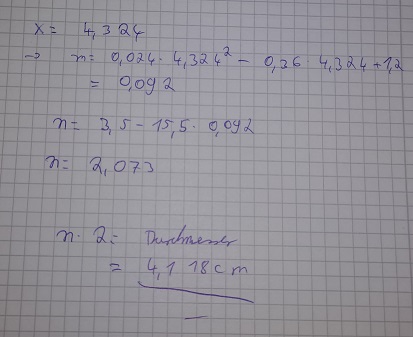 x = 4,324
→ n = 0,024 · 4,324² - 0,36 · 4,324 + 1,2
= 0,092
n = 3,5 - 15,5 · 0,092
n = 2,073
n · 2 = Durchmesser
= 4,118 cm